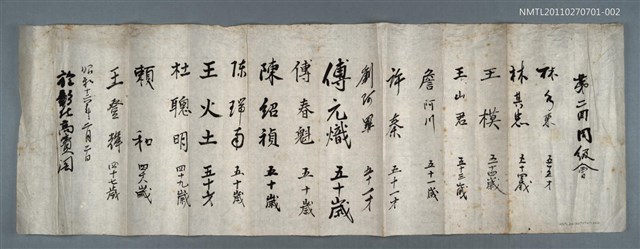 NMTL20110270701-002
第二回同級會
林 五十五才
林其忠 五十四歲
王模 五十四歲
王山君 五十三歲
詹阿川 五十一歲
許秦 五十一才
劉阿 五十一才
傅元熾 五十歲
傅春魁 五十歲
陳紹禎 五十歲
陳瑞甫 五十歲
王火土 五十才
杜聰明 四十九歲
賴和 四十八歲
王登 四十七歲
昭和十六年二月二日
於彰化高賓閣